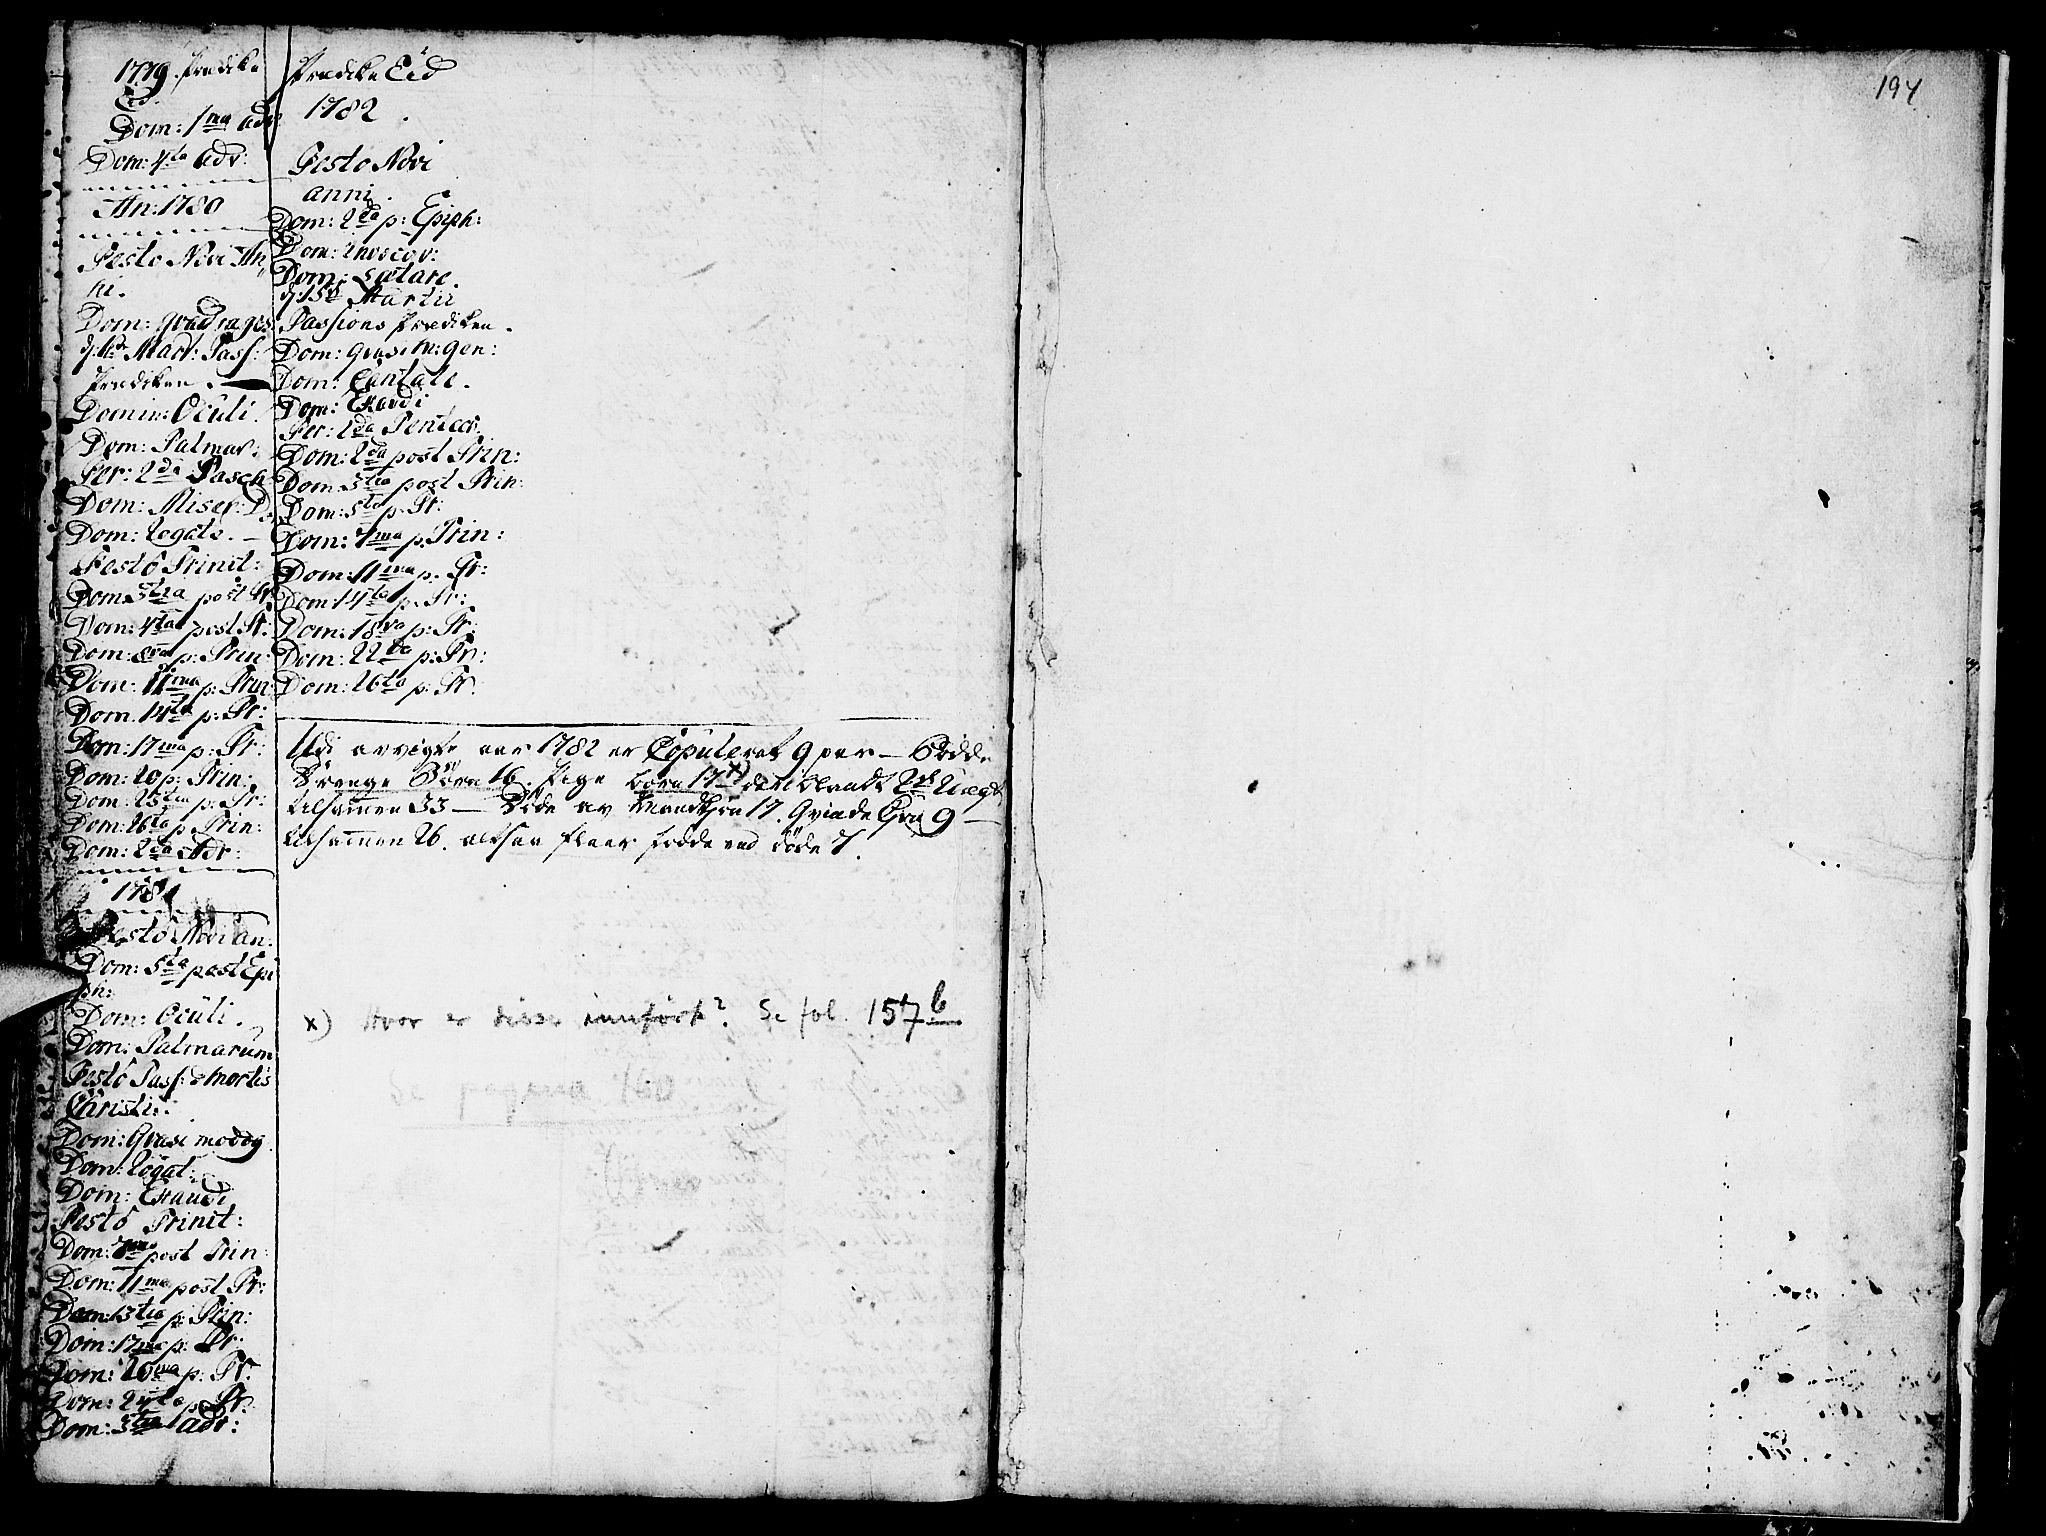 1779. Prædike
Eid.
Dom: 1ma adv
Dom: 4ta adv:
An: 1780
Festo Novi An
ni.
Dom: qvadrages
d: Mart: Pass:
Prædiken.
Domin: Oculi.
Dom: Palmar:
Fer: 2da Pasch
Dom: Miser: D
Dom: Rogate.
Festo Trinit:
Dom: 3tia post Tr.
Dom: 4ta post Tr:
Dom: 8va p: Trin:
Dom: 11ma p: Trin:
Dom. 14ta p: Tr:
Dom: 17ma p: Tr:
Dom: 20 p: Trin:
Dom: 23tia p: Tr:
Dom: 26ta p. Trin:
Dom: 2da Adv:
1781
Festo Novi an:
Dom: 5ta post Epi
ph:
Dom: Oculi.
Dom: Palmarum
Festo Pass: & mortis
Christi.
Dom: Qvasi modog
Dom: Rogat:
Dom: Exaudi
Festo Trinit:
Dom: 7ma post Trin:
Dom: 11ma post Tr:
Dom: 13tia p: Trin:
Dom: 17ma p: Tr:
Dom: 20ma p: Tr:
Dom: 24ta p: Tr.
Dom: 3tia adv:
Prædike Eid
1782.
Festo Novi
anni.
Dom: 2da p: Epiph:
Dom: invocav:
Dom: Lætare.
d: 15de Martii
Passions Prædiken.
Dom: Qvasim: gen:
Dom: Cantate.
Dom: Exaudi
Fer: 2da Pentec:
Dom: 2da post Trin:
Dom: 3tia post Trin:
Dom: 5ta p. Tr:
Dom: 7ma p. Trin:
Dom: 11ma p. Tr:
Dom 14ta p. Tr:
Dom: 18va p: Tr:
Dom: 22da p: Tr:
Dom: 26ta p: Tr.
Udi avvigte aar 1782 er Copuleret 9 par — Födde
Drenge Börn 16. Pige börn 17 x) deriblandt 2de Uægte
tilsamen 33 — Döde av Mandkjön 17. Qvinde Kjön 9 —
tilsamen 26. altsaa fleer födde end döde 7.
x) Hvor er disse innfört? Se fol. 157b
Se pagina 160
197